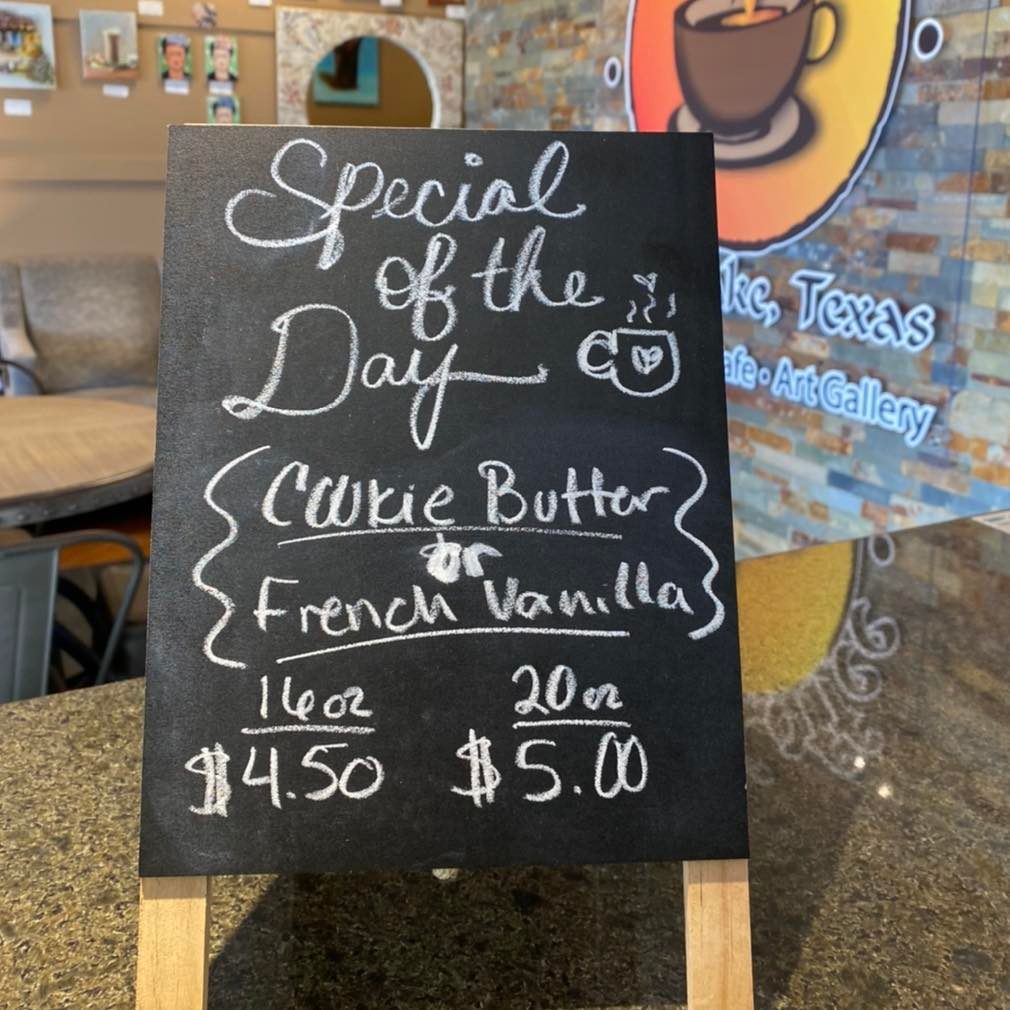 Special
of the
Day
Cookie Butter
or
French Vanilla
16oz 20oz
$4.50 $5.00
Texas
Art Gallery